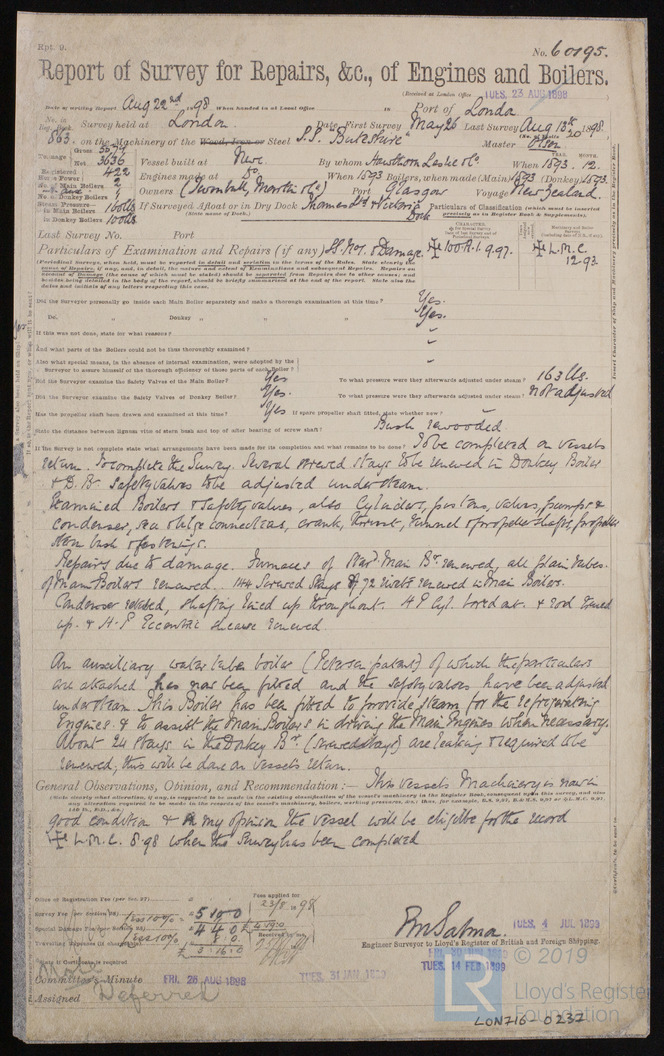 Rpt. 9.
No. 60195.
Report of Survey for Repairs, &c., of Engines and Boilers.
(Received at London Office TUES. 23 AUG 1898
Date of writing Report Aug 22nd 1898 When handed in at Local Office Port of London
No. in Reg. Book. Survey held at London Date, First Survey May 26 Last Survey Aug 18th 20 1898.
863 on the Machinery of the Wood, Iron or Steel S.S. "Buteshire" Master Olsen
Tonnage Gross Net 3636 Vessel built at Nwc. By whom Hawthorn Leslie & Co When 1893. 12.
Registered 422 Engines made at Do When 1893 Boilers, when made (Main) 1893 (Donkey) 1893
No. of Main Boilers 2 Owners (Turnbull, Martin & Co) Port Glasgow Voyage New Zealand.
No. of Donkey Boilers
Steam Pressure in Main Boilers 160 lbs If Surveyed Afloat or in Dry Dock Thames & Victoria Dock
in Donkey Boilers 100 lbs (State name of Dock.)
Particulars of Classification (which must be inserted precisely as in Register Book & Supplements).
Last Survey No. Port
Particulars of Examination and Repairs (if any) SS. No 1. & Damage. ✠ 100 A.1. 9.97. ✠ L.M.C. 12.93
(Periodical Surveys, when held, must be reported in detail and seriatim in the terms of the Rules.
Did the Surveyor personally go inside each Main Boiler separately and make a thorough examination at this time? Yes.
Do. " Donkey " " " " Yes.
If this was not done, state for what reasons? -
And what parts of the Boilers could not be thoroughly examined? -
Also what special means, in the absence of internal examination, were adopted by the
Surveyor to assure himself of the thorough efficiency of those parts of each Boiler? -
Did the Surveyor examine the Safety Valves of the Main Boiler? Yes To what pressure were they afterwards adjusted under steam? 163 lbs.
Did the Surveyor examine the Safety Valves of Donkey Boiler? Yes. To what pressure were they afterwards adjusted under steam? not adjusted
Has the propeller shaft been drawn and examined at this time? Yes If spare propeller shaft fitted, state whether new? -
State the distance between lignum vitæ of stern bush and top of after bearing of screw shaft? Bush rewooded.
If the Survey is not complete state what arrangements have been made for its completion and what remains to be done? To be completed on vessels
return. To complete the Survey. Several screwed stays to be renewed in Donkey Boiler
& D.Br. Safety valves to be adjusted under steam.
Examined Boilers & Safety valves, also Cylinders, pistons, valves, pumps &
condenser, sea & bilge connections, crank, thrust, tunnel & propeller shafts, propeller
stern bush & fastenings.
Repairs due to damage. Furnaces of Starbd. Main Br. renewed, all plain tubes.
of Main Boilers renewed. 144 Screwed Stays & 72 rivets renewed in Main Boilers.
Condenser retubed, shafting lined up throughout. H P Cyl. bored out & rod trued
up. & H.P Eccentric sheave renewed
An auxiliary water tube boiler (Petersen patent) of which the particulars
are attached has now been fitted and the safety valves have been adjusted
under steam. This Boiler has been fitted to provide steam for the refrigerating
Engines & to assist the Main Boilers in driving the Main Engines when necessary.
About 24 stays in the Donkey Br. (screwed stays) are leaking & required to be
renewed, this will be done on vessels return.
General Observations, Opinion, and Recommendation:— This vessels Machinery is now in
good condition & in my opinion the vessel will be eligible for the record
✠ L.M.C. 8.98 when the Survey has been completed
Office or Registration Fee (per Sec. 27) £
Fees applied for 23/8 1898
Survey Fee (per Section 28) less 10% £ 5 10 0
Special Damage Fee (per Section 28) £ 4 4 0
less 10%
Travelling Expenses (if chargeable)
Received by me,
TUES. 4 JUL 1899
Engineer Surveyor to Lloyd's Register of British and Foreign Shipping.
Committee's Minute FRI. 26 AUG 1898 TUES. 31 JAN 1899 TUES. 14 FEB 1899
Assigned Deferred
© 2019
LR Lloyd's Register Foundation
LON716-0237